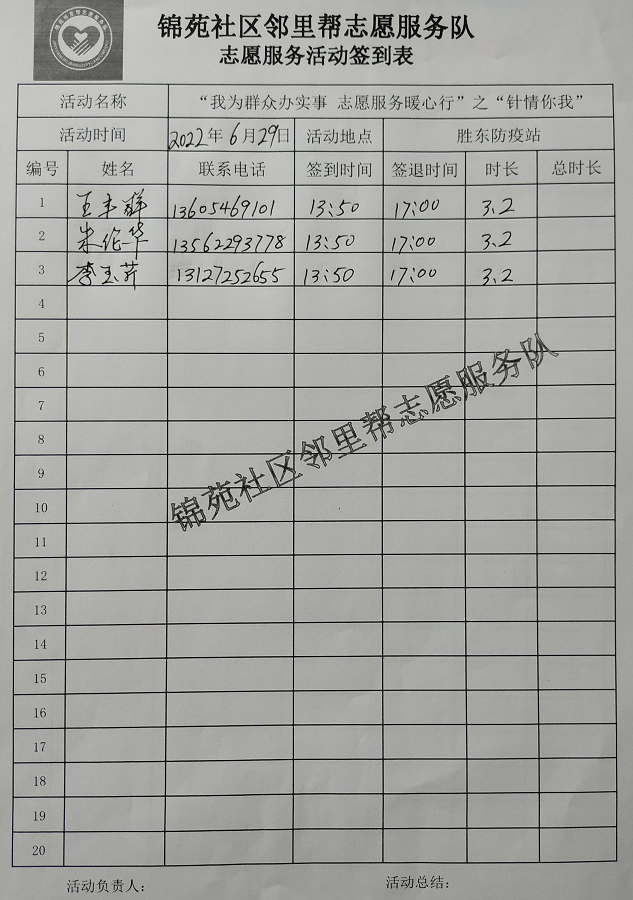 锦苑社区邻里帮志愿服务队
志愿服务活动签到表
活动名称 “我为群众办实事 志愿服务暖心行”之“针情你我”
活动时间 2022年6月29日 活动地点 胜东防疫站
编号 姓名 联系电话 签到时间 签退时间 时长 总时长
1 王丰群 13605469101 13:50 17:00 3.2
2 朱纶华 13562293778 13:50 17:00 3.2
3 李玉 13127252655 13:50 17:00 3.2
4
5
6
7
8
9
10
11
12
13
14
15
16
17
18
19
20
锦苑社区邻里帮志愿服务队
活动负责人: 活动总结: